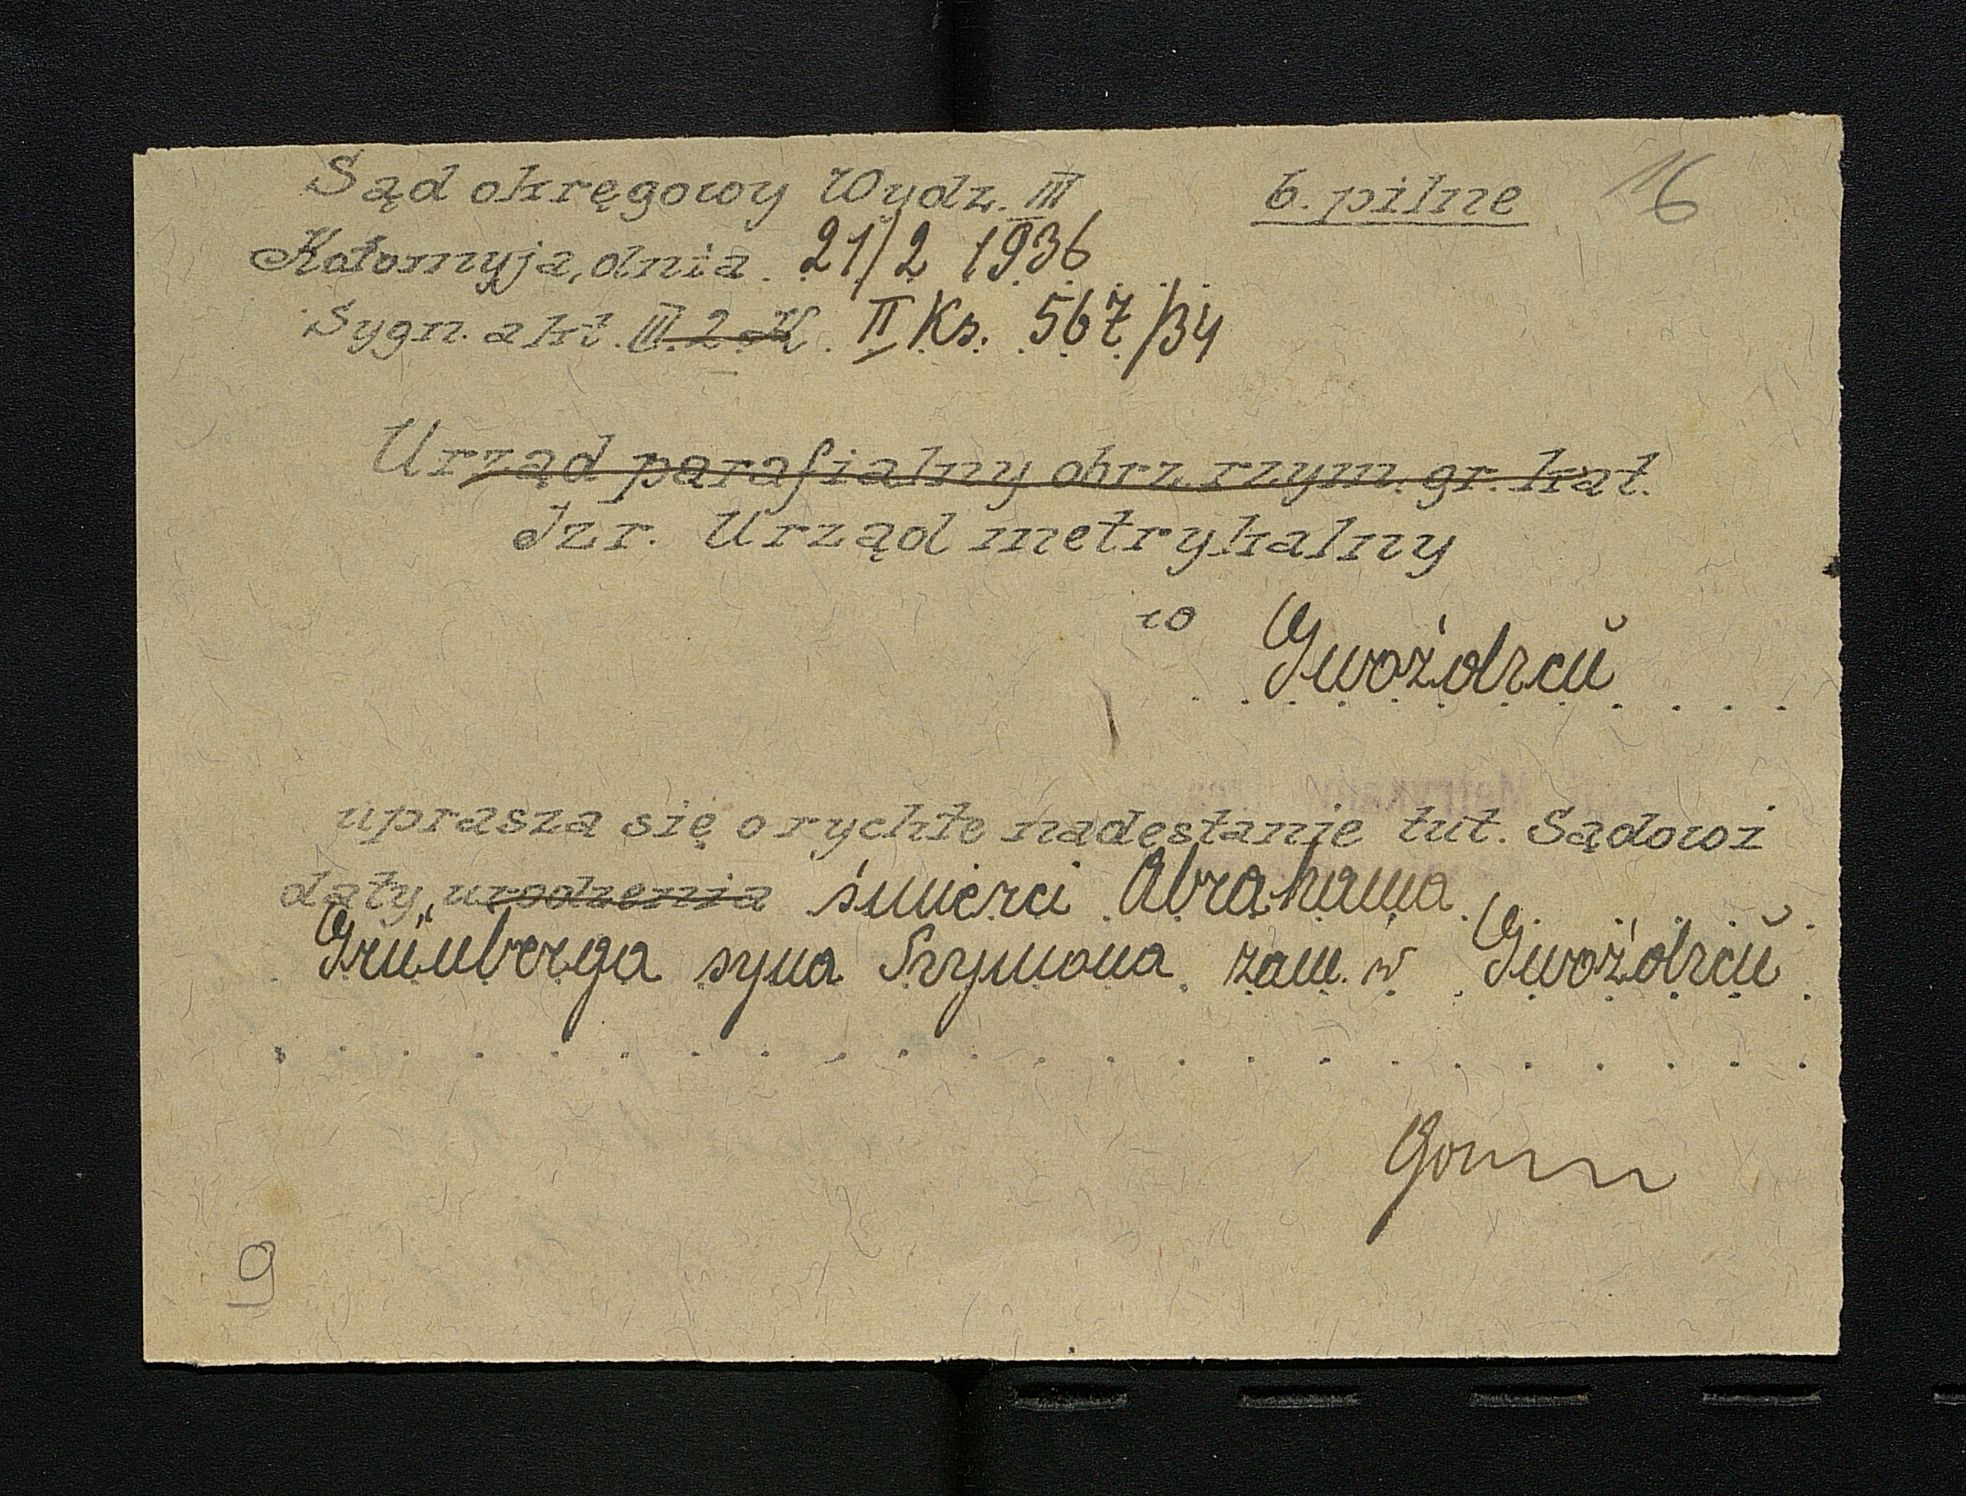 Sąd okręgowy Wydz. III b. pilne 16
Kołomyja, dnia 21/2 1936
Sygn. akt. III. 2. K. II Ks. 567/34
Urząd parafialny obrz. rzym. gr. kat.
Izr. Urząd metrykalny
w Gwoźdzcu
uprasza się o rychłe nadesłanie tut. Sądowi
daty urodzenia śmierci Abrahama
Grünberga syna Szymona zam. w Gwoźdzcu
9